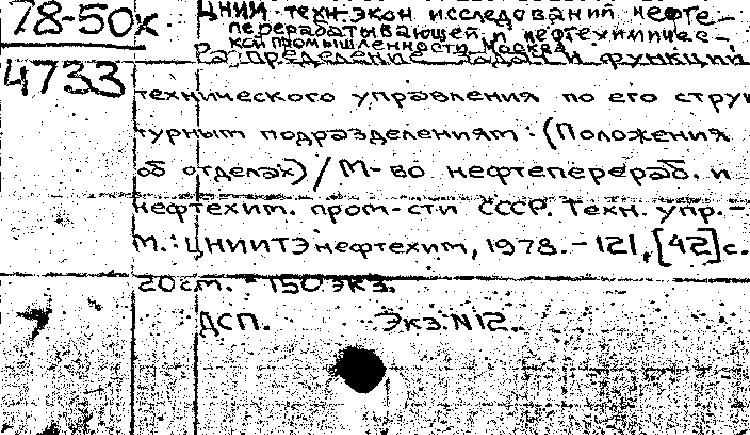 78-50к
4733
ЦНИИ техн-экон исследований нефте-
перерабатывающей и нефтехимичес-
кой промышленности, Москва.
Распределение задач и функций
технического управления по его струк
турным подразделениям: (Положения
об отделах) / М-во нефтеперераб. и
нефтехим. пром-сти СССР. Техн. упр. -
М.: ЦНИИТЭнефтехим, 1978. - 121, [42] с.
20 см. - 150 экз.
ДСП. Экз. N12.